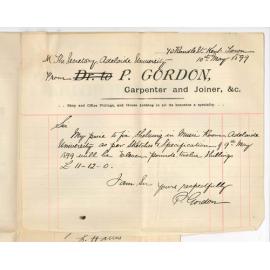 40 Rundle St Kent Town
10th May 1899
M. The Secretary Adelaide University
From Dr. to P. GORDON,
Carpenter and Joiner, &c.
Shop and Office Fittings, and House Jobbing in all its branches a specialty.
Sir
My price to fix Shelving in Music Room Adelaide
University as per Sketches & Specification of 9th May
1899 will be Eleven pounds twelve Shillings
£ 11-12-0.
I am Sir
yours respectfully
P. Gordon